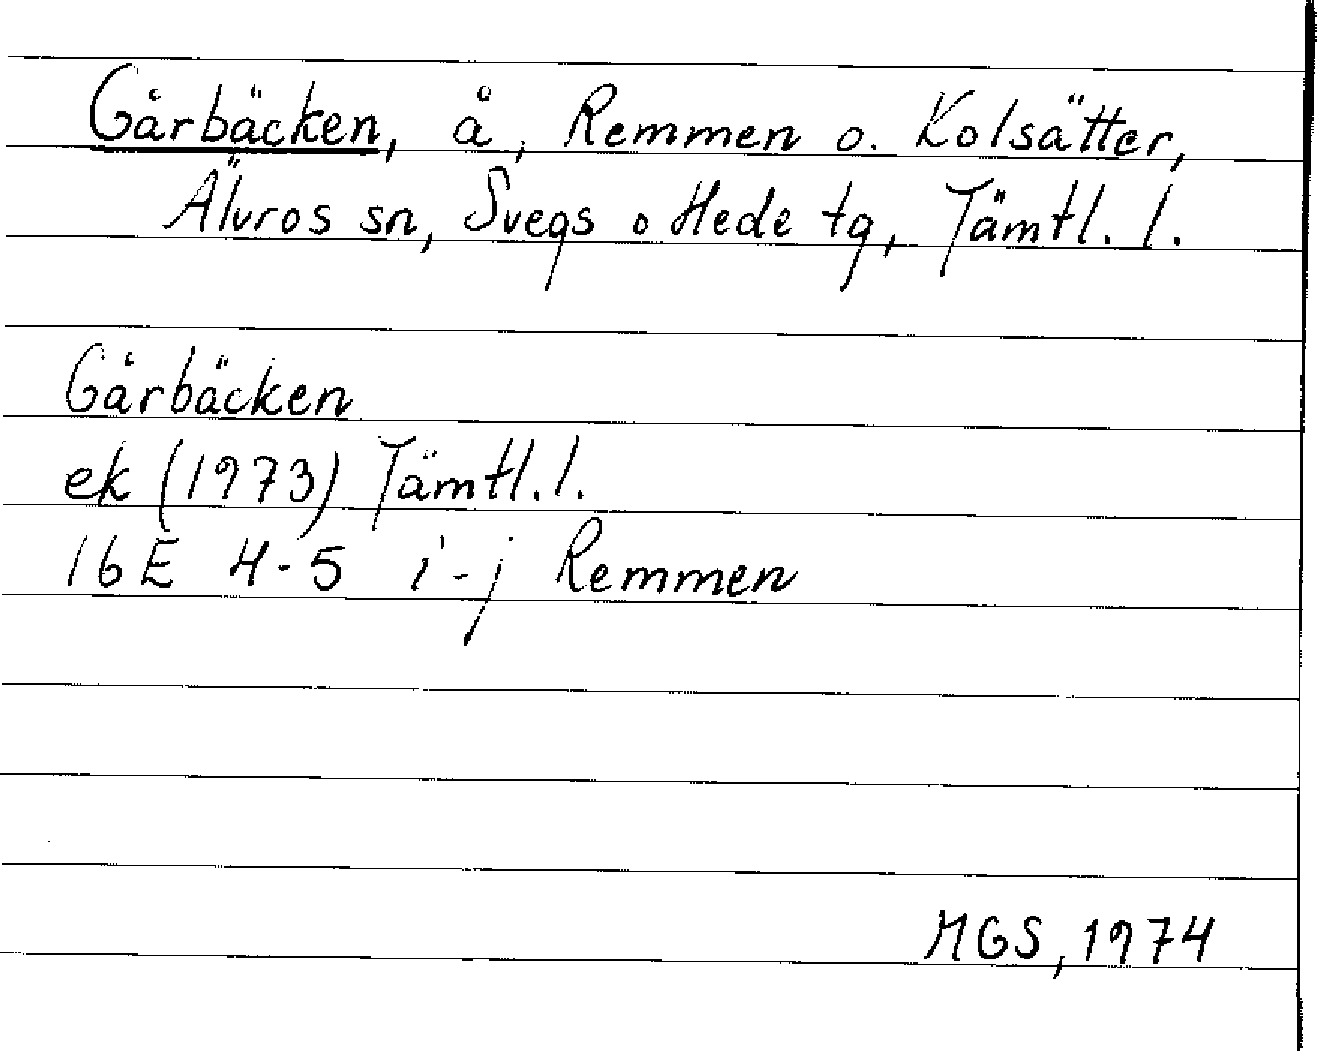 Gårbäcken, å, Remmen o. Kolsätter,
Älvros sn, Svegs o Hede tg, Jämtl. l.
Gårbäcken
ek (1973) Jämtl. l.
16E 4-5 i-j Remmen
MGS, 1974